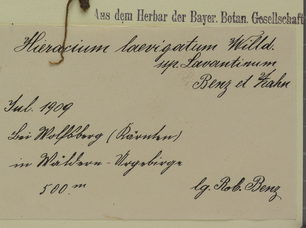 Aus dem Herbar der Bayer. Botan. Gesellschaft
Hieracium laevigatum Willd.
ssp. Lavantinum
Benz et Zahn
Jul. 1909
Bei Wolfsberg (Kärnten)
in Wäldern - Urgebirge
500 m
lg. Rob. Benz